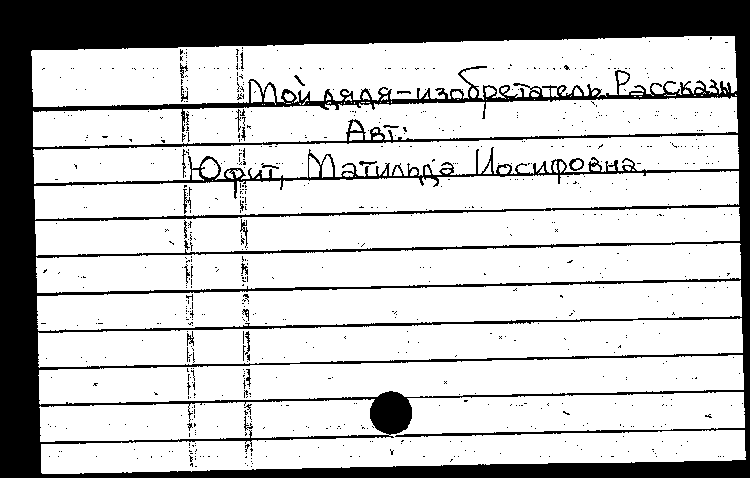 Мой дядя-изобретатель. Рассказы
Авт.:
Юфит, Матильда Иосифовна.